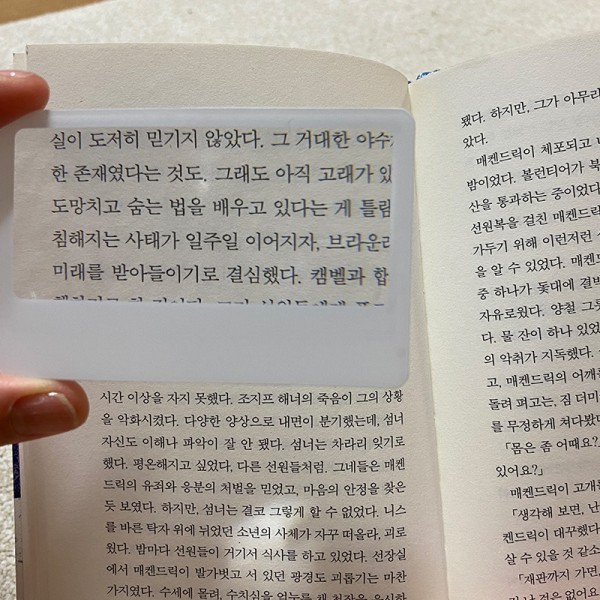 실이 도저히 믿기지 않았다. 그 거대한 야수
한 존재였다는 것도. 그래도 아직 고래가 있
도망치고 숨는 법을 배우고 있다는 게 틀림
침해지는 사태가 일주일 이어지자, 브라운리
미래를 받아들이기로 결심했다. 캠벨과 합
시간 이상을 자지 못했다. 조지프 해너의 죽음이 그의 상황
을 악화시켰다. 다양한 양상으로 내면이 분기했는데, 섬너
자신도 이해나 파악이 잘 안 됐다. 섬너는 차라리 잊기로
했다. 평온해지고 싶었다, 다른 선원들처럼. 그네들은 매켄
드릭의 유죄와 응분의 처벌을 믿었고, 마음의 안정을 찾은
듯 보였다. 하지만, 섬너는 결코 그렇게 할 수 없었다. 니스
를 바른 탁자 위에 뉘었던 소년의 사체가 자꾸 떠올라, 괴로
웠다. 밤마다 선원들이 거기서 식사를 하고 있었다. 선장실
에서 매켄드릭이 발가벗고 서 있던 광경도 괴롭기는 마찬
가지였다. 수세에 몰려, 수치심을
됐다. 하지만, 그가 아무리
았다.
매켄드릭이 체포되고
밤이었다. 볼런티어가 북
산을 통과하는 중이었다
선원복을 걸친 매켄드
가두기 위해 이런저런
을 알 수 있었다. 매켄
중 하나가 돛대에 결박
자유로웠다. 양철 그릇
다. 물 잔이 하나 있었
의 악취가 지독했다.
고, 매켄드릭의 어깨
돌려 펴고는, 짐 더미
를 무정하게 쳐다봤다
「몸은 좀 어때요?
있어요?」
매켄드릭이 고개
「생각해 보면, 난
켄드릭이 대꾸했다
살 수 있을 것 같소
「재판까지 가면,